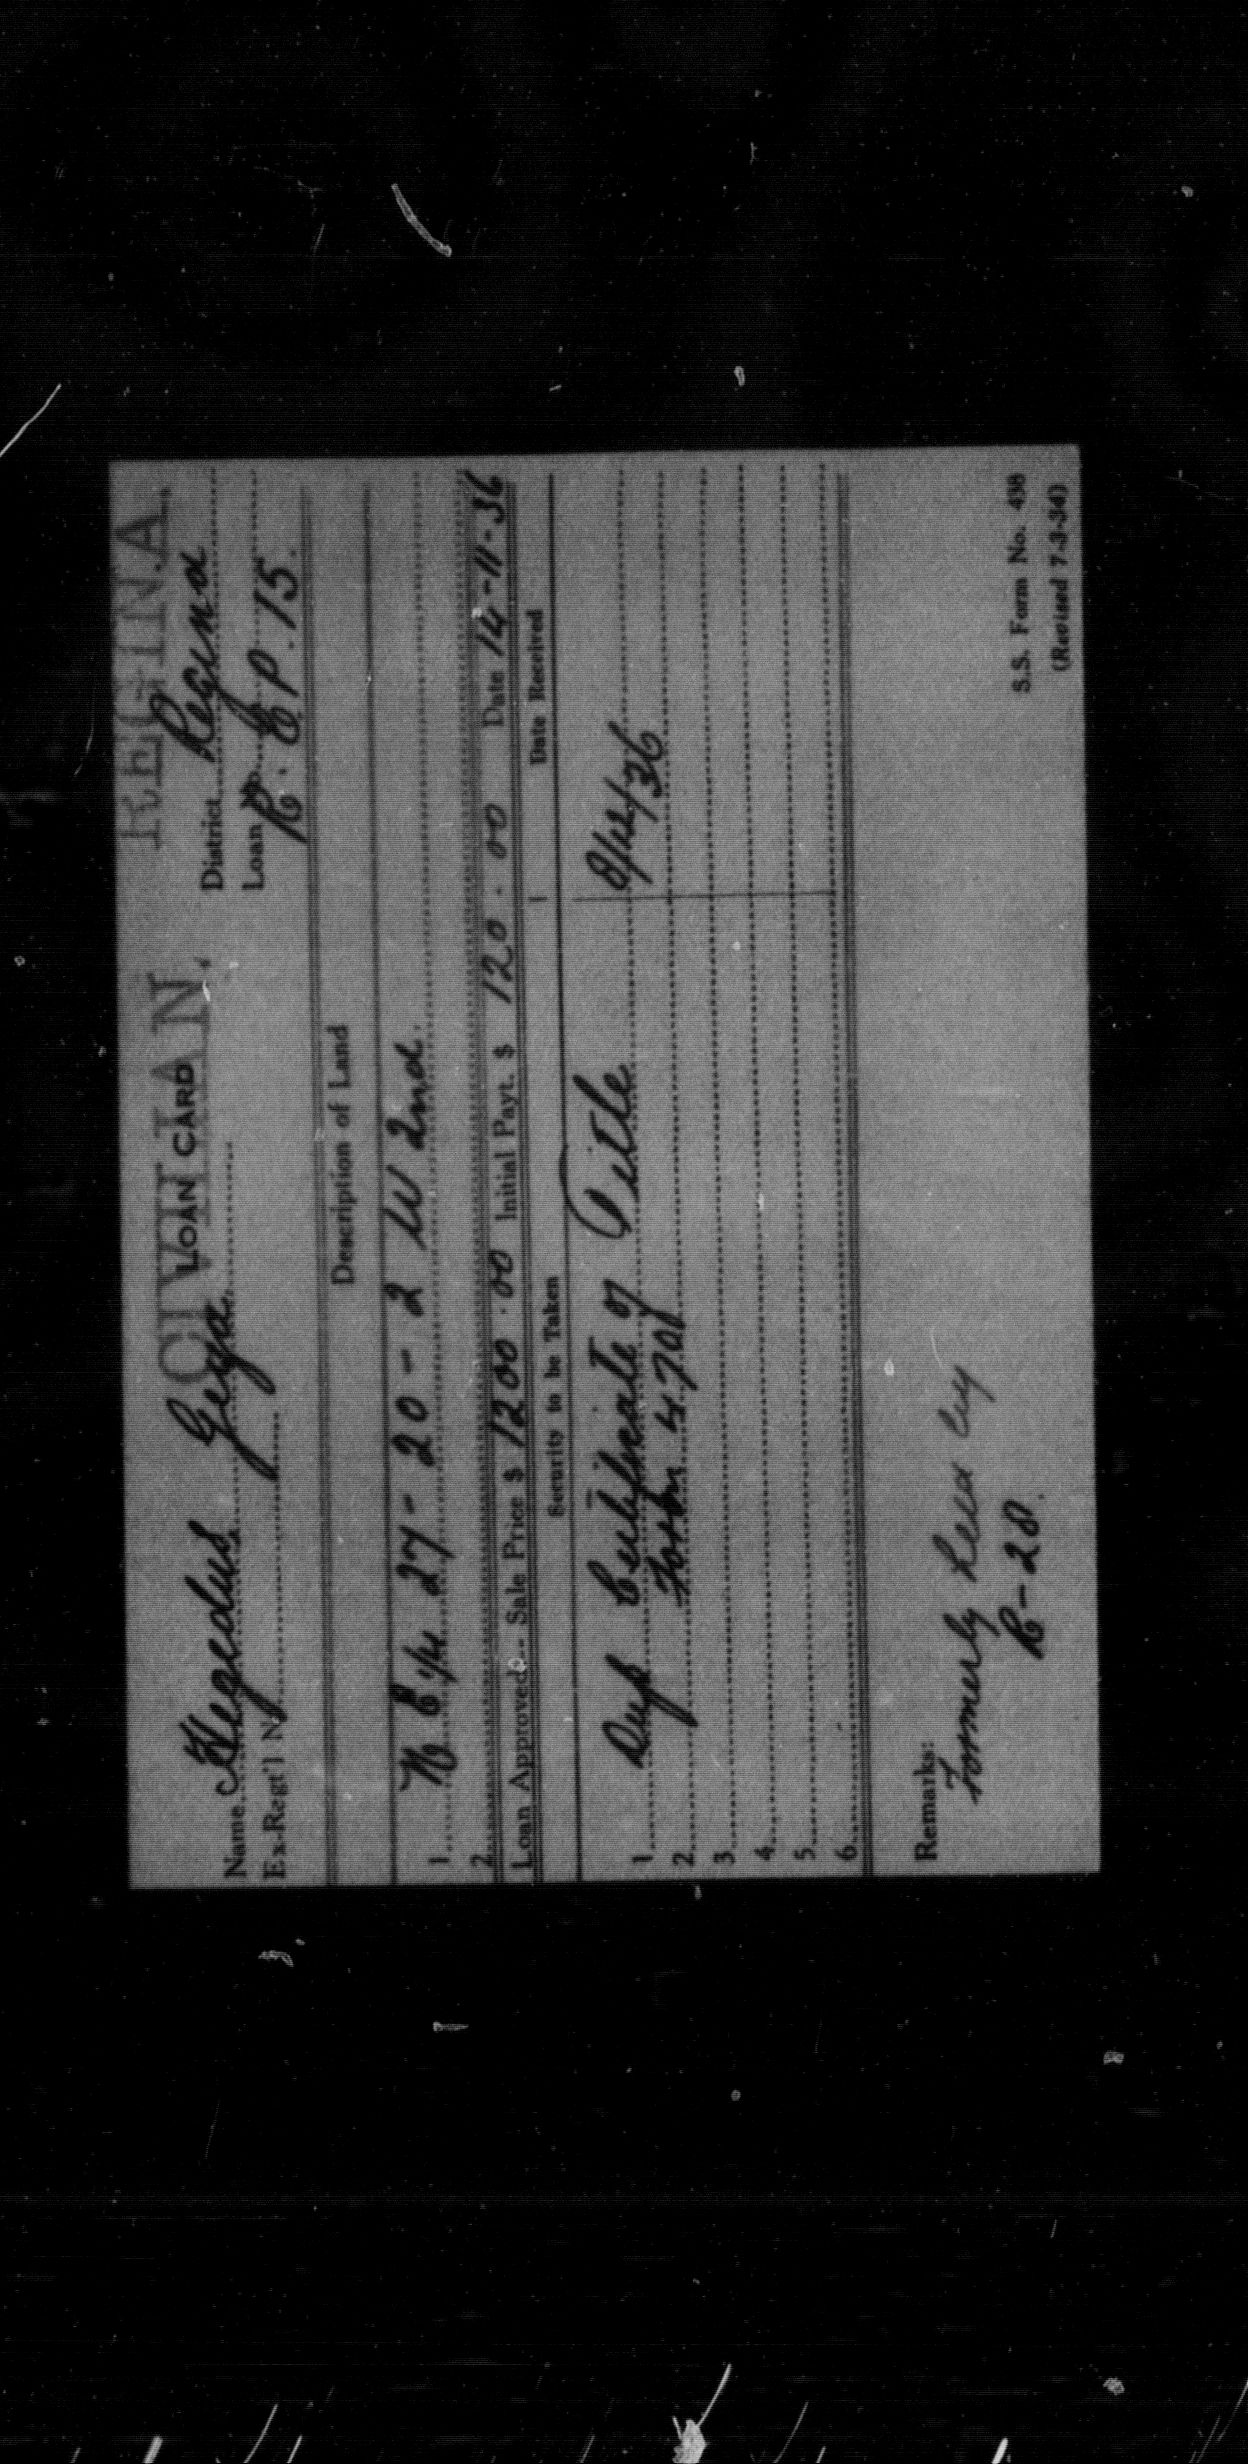 REGINA
CIVILIAN.
LOAN CARD
District Regina
Name Hegedus, Geya.
Loan No. R. E P. 15.
Ex-Regt'l No.
Description of Land
1. N E 1/4 27 - 20 - 2 W 2nd.
2.
Loan Approved:- Sale Price $ 1200.00 Initial Payt. $ 120.00 Date 14-11-36
Security to be Taken Date Received
1. Dup Certificate of Title 8/12/36
2. Form 470
3.
4.
5.
6.
Remarks:
Formerly
R-28.
S.S. Form No. 438
(Revised 7-3-34)